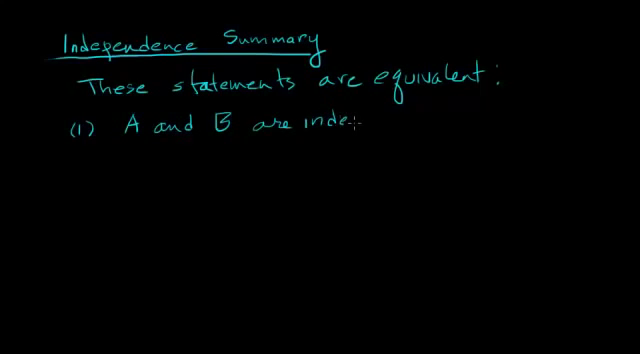 Independence Summary
These statements are equivalent:
(1) A and B are inde